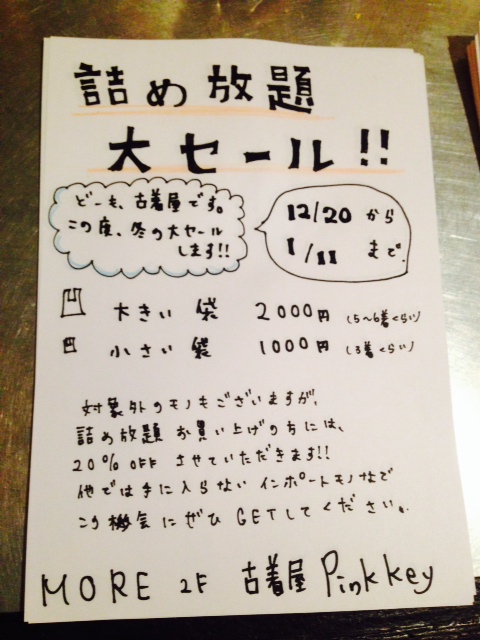 詰め放題
大セール!!
どーも、古着屋です。
この度、冬の大セール
します!!
12/20 から
1/11 まで。
大きい 袋 2000円 (5〜6着くらい)
小さい 袋 1000円 (3着くらい)
対象外のモノもございますが、
詰め放題 お買い上げの方には、
20% OFF させていただきます!!
他では手に入らない インポートモノなで
この機会 にぜひ GETして ください。
MORE 2F 古着屋 Pinkkey